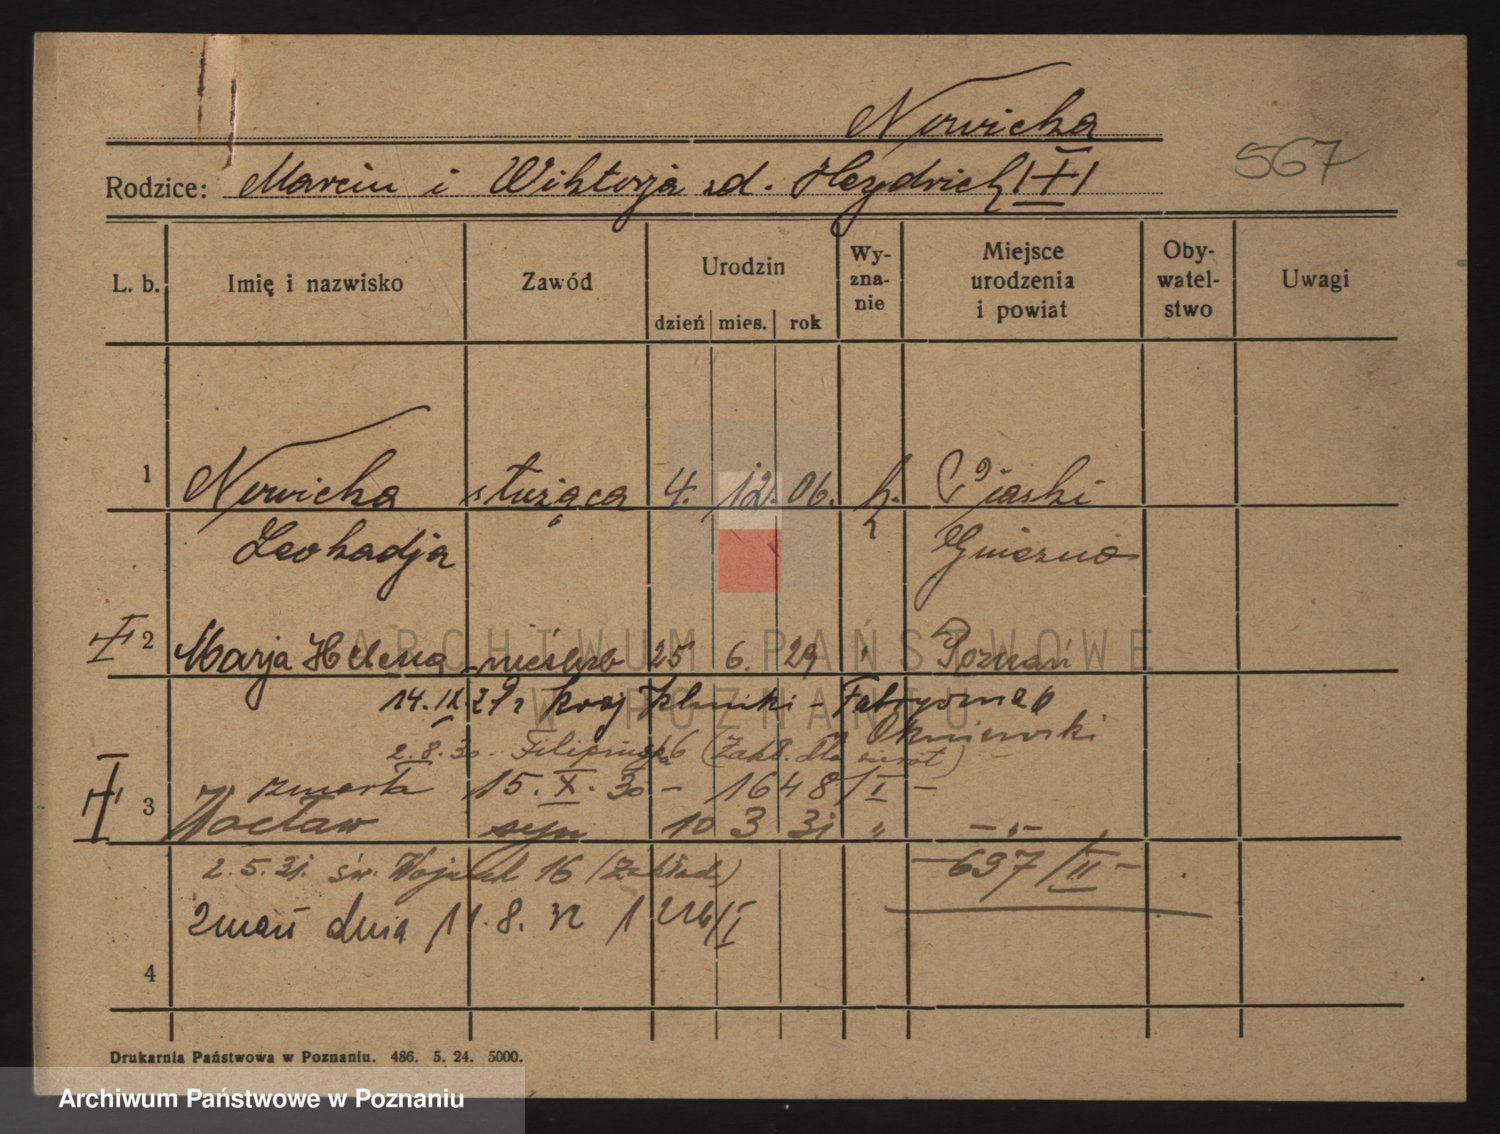 Nowicka
Rodzice: Marcin i Wiktorja zd. Heydrich
567
L. b. Imię i nazwisko Zawód Urodzin dzień mies. rok Wy-zna-nie Miejsce urodzenia i powiat Oby-watel-stwo Uwagi
1 Nowicka służąca 4. 12. 06. k. Piaski
Leokadja Gniezno
2 Marja Helena nieślub 25 6. 29 " Poznań
14. IX. 29
2.8.30 Filipińska 6 (Zakł. dla sierot)
zmarła 15. X. 30 - 1648/I -
3 Wacław syn 10 3 31 " - " -
2.5.31. św. Wojciech 16 (Zakład) - 697/II -
zmarł dnia 11.8.32 1216/I
4
Drukarnia Państwowa w Poznaniu. 486. 5. 24. 5000.
ARCHIWUM PAŃSTWOWE
W POZNANIU
Archiwum Państwowe w Poznaniu